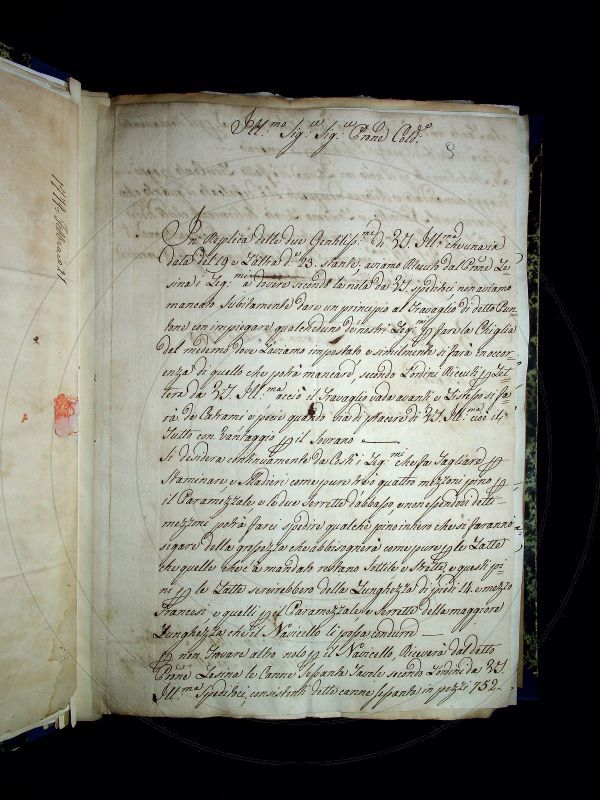 Ill.mo Sig.re Sig.re Prone Cold.o
8
1774 Febbraro 21
In Replica delle due Gentiliss.me di V.S. Ill.ma che una in
data del 19 e l'altra d.o 23. stante, aviamo Ricevuto dal Prone Le-
sina i Leg.mi a dovere secondo la nota da V.S. speditaci non aviamo
mancato subitamente dare un principio al Travaglio di detto Pun-
tone con impiegare qualcheduno de nostri Leg.mi p fare la Chiglia
del medemo dove l'aviamo impostato e similmente si farà in occor-
enza di quello che potrà mancare, secondo l'ordini Ricevuti p Let-
tera da V.S. Ill.ma acciò il Travaglio vada avanti e l'istesso si fa-
rà de Catrami e pece quando sia di piacere di V.S. Ill.ma cioè il
Tutto con vantaggio p il Sovrano
Si desidera continuamente da Cod.i i Leg.mi che fa Tagliare p
Staminare e Madieri come pure tre o quattro mezzoni pino p
il Paramezzale e le due serrette d'abbasso e non essendovi detti
mezzoni potrà farci spedire qualche pino intiero che si faranno
segare della grossezza che abbisognerà come pure p le Latte
che quelle che c'à mandate restano sottile e strette, e questi pi-
ni p le Latte serverebbero della Lunghezza di piedi 14. e mezzo
Francesi e quelli p il Paramezzale e serrette della maggiore
Lunghezza che il Navicello li possa condure
p non trovare altro nolo p il Navicello, Riceverà dal detto
Prone Lesina le Canne sessanta Tavole secondo l'ordini da V.S.
Ill.ma Speditoci, consistenti dette canne sessanta in pezzi 752.